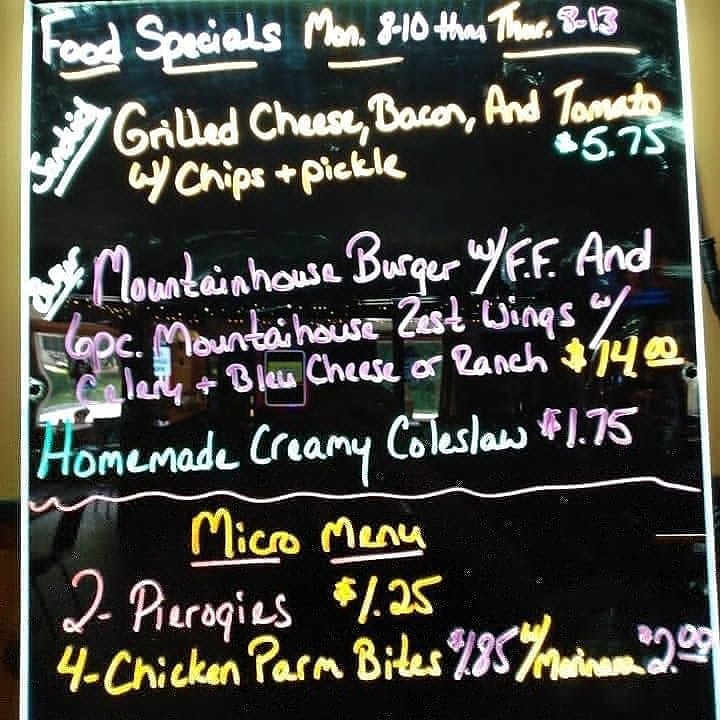 Food Specials Mon. 8-10 thru Thur. 8-13
Sandwich Grilled Cheese, Bacon, And Tomato
w/ Chips + pickle $5.75
Mountainhouse Burger w/ F.F. And
6pc. Mountaihouse Zest Wings w/
Celery + Bleu Cheese or Ranch $14.00
Homemade Creamy Coleslaw $1.75
Micro Menu
2- Pierogies $1.25
4- Chicken Parm Bites $1.85 w/ Marinara $2.00